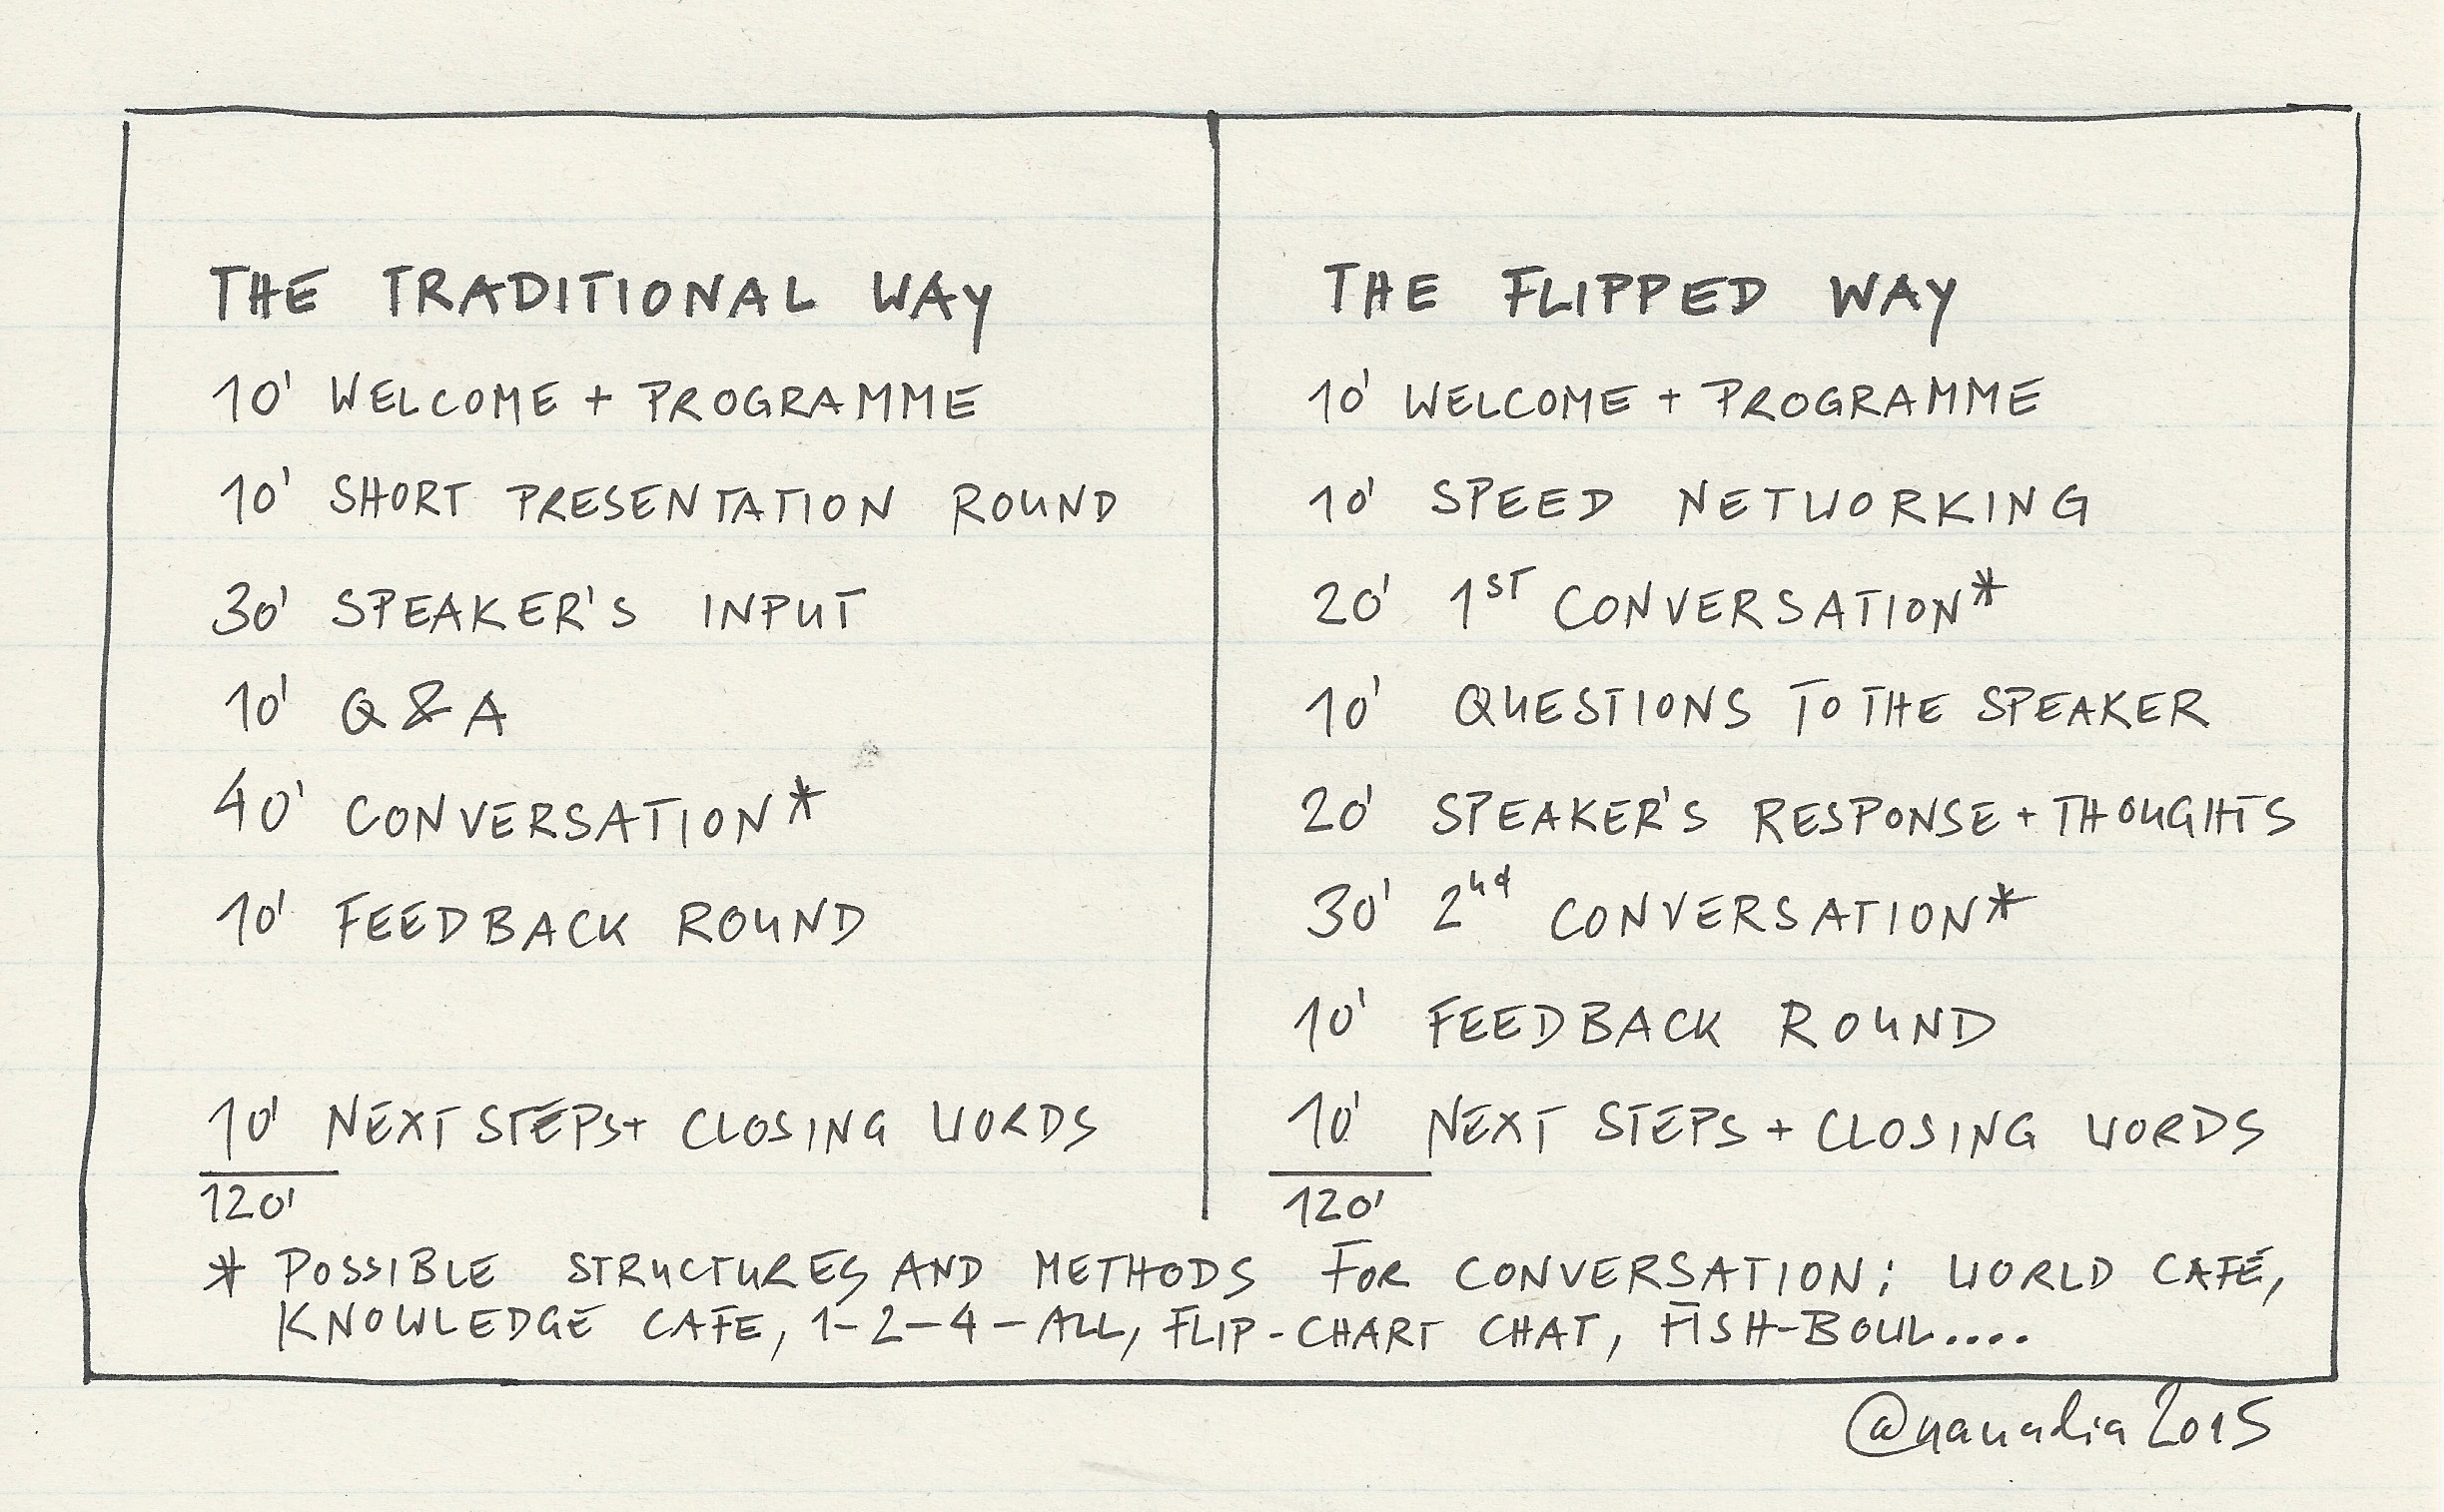 THE TRADITIONAL WAY
10' WELCOME + PROGRAMME
10' SHORT PRESENTATION ROUND
30' SPEAKER'S INPUT
10' Q & A
40' CONVERSATION*
10' FEEDBACK ROUND
10' NEXT STEPS+ CLOSING WORDS
120'
THE FLIPPED WAY
10' WELCOME + PROGRAMME
10' SPEED NETWORKING
20' 1ST CONVERSATION*
10' QUESTIONS TO THE SPEAKER
20' SPEAKER'S RESPONSE + THOUGHTS
30' 2nd CONVERSATION*
10' FEEDBACK ROUND
10' NEXT STEPS + CLOSING WORDS
120'
* POSSIBLE STRUCTURES AND METHODS FOR CONVERSATION: WORLD CAFÉ,
KNOWLEDGE CAFE, 1-2-4-ALL, FLIP-CHART CHAT, FISH-BOWL....
@nanadia2015